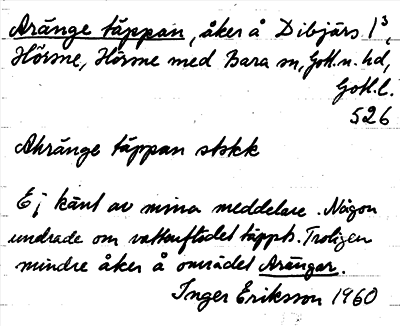 Aränge täppan, åker å Dibjärs 1³,
Hörsne, Hörsne med Bara sn, Gotl. n. hd,
Gotl. l.
526
Ahränge täppan stskk
Ej känt av mina meddelare. Någon
undrade om vattenflödet täppts. Troligen
mindre åker å området Arängar.
Inger Eriksson 1960